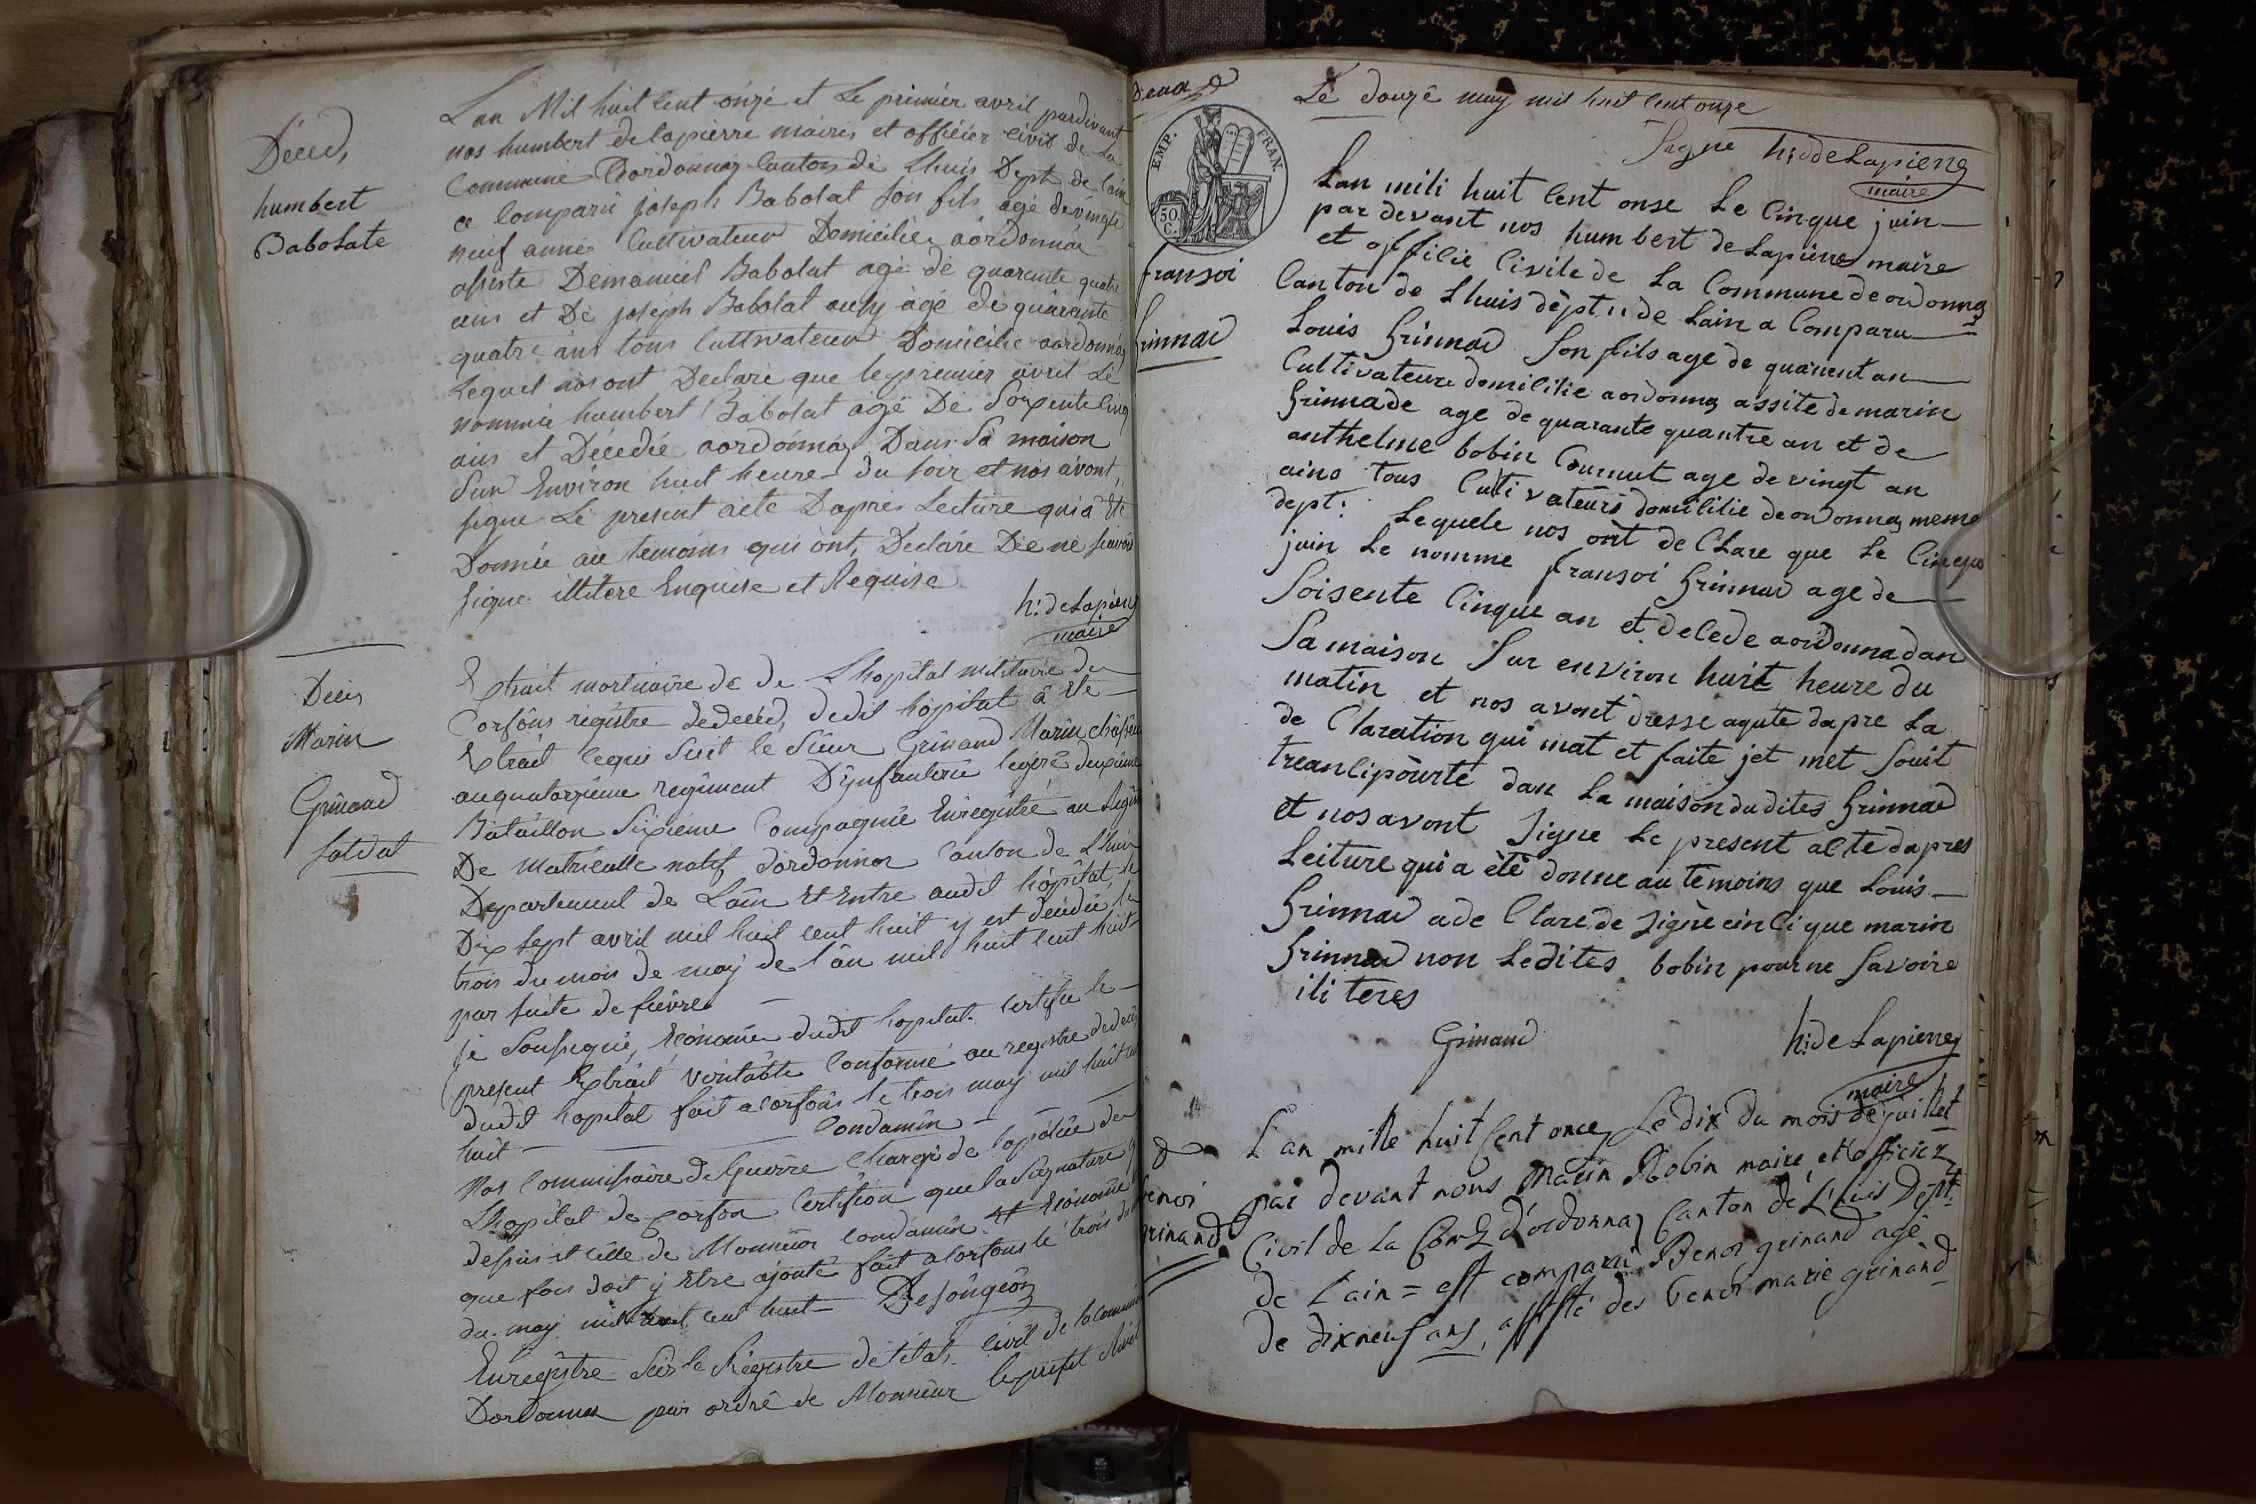 Déced,
humbert
Babolate
Lan Mil huit Cent onze et Le primier avril pardivant
nos humbert de lapierre mairis et offiéier civil de La
Commune Dordonnaz Canton de Lhuis Dept de lain
a Comparu joseph Babolat son fils agé devingte
neuf anneé Cultivateur Domicilié aordonnaz
asisté Demaniel Babolat agé de quarante quatre
ans et De joseph Babolat ausy agé de quarante
quatre ans tous Cultivateur Domicilié aordonnaz
Lequel nos ont Declaré que lepremier avril Le
nommée humbert Babolat agé De Soixente Cinq
ans et Décedée aordonnaz Dans Sa maison
Sur Environ huit heure du Soir et nos avont,
signe Le present acte Dapres Lecture quia Eté
Donnée au temoins qui ont, Declaré De ne scavoir
signe illitere Enquise et Requise
h: de Lapierre
maire
Décés
Marin
Grinand
soldat
Extrait mortuaire de de Lhopital militaire de
Corfous régistre dedecéd, dedit hopital a été
Extrait cequi suit le Sieur Grinand Marin chasseur
auquatorzieme regiment D'ynfanterie legére deuxieme
Bataillon Sixiéme Compagnie Enregistré au Registre
De Matricalle natif dordonnor Canton de Lhuis
Departement de Lain Et Entre audit hopital, le
Dix Sept avril mil huit cent huit y est deçédée le
trois du mois de may de l'an mil huit cent huit
par suite de fievre
je Soussigné, Econome dudit hopital. Certifie le
present Extrait veritable Conforme au registre dedecés
dudit hopital fait a Corfous le trois may mil huit cent
huit Condamin
Nos Commissaire de Guerre Chargé de la police de
Lhopital de Corfou Certifion que la Signature
desus et Celle de Monsieur Condamin Et Econome
que fois doit y etre ajouté fait a Corfous le trois du
du may mil huit cent huit Desongeon
Enregistre Sur le Régistre de l'etat civil de la commune
Dordonnaz par ordre de Monsieur le prefet
Le douze may mil huit Cent onze
Signe h: de Lapierre
maire
EMP. FRAN.
50
C.
fransoi
Grinnad
Lan mili huit Cent onse Le Cinque juin
par devant nos humbert de Lapierre maire
et offilie Civile de La Commune de ordonnaz
Canton de Lhuis dept.. de Lain a Comparu
Louis Grinnad Son fils age de quarent an
Cultivateure domililie aordonnaz assite de marin
Grinnade age de quarante quantre an et de
anthelme bobin age de vingt an
ains tous Cultivateurs domililie de ordonnaz meme
dept: Lequele nos ont de Clare que Le Cinque
juin Le nomme fransoi Grinnad age de
Soisente Cinque an et delede aordonna dan
Sa maison Sur environ huit heure du
matin et nos avont dresse aqute dapre La
de Claration qui mat et faite jet met Souit
treanlipourte dan La maison du dites Grinnad
et nos avont Signe Le present alte dapres
Leiture qui a été donne au témoins que Louis
Grinnad ade Clare de Signe einli que marin
Grinnad non Ledites bobin pour ne Savoire
ili teres
Grinand
h: de Lapierre
maire
Benoi
Grinand
L'an mille huit Cent once, Le dix du mois de juillet
par devant nous Marin Robin maire, et officier
Civil de La d'ordonnaz Canton de L'huis Dept.
de L'ain = est comparu Benoi grinand agé
de dix neuf ans, assisté des benoi marie grinand